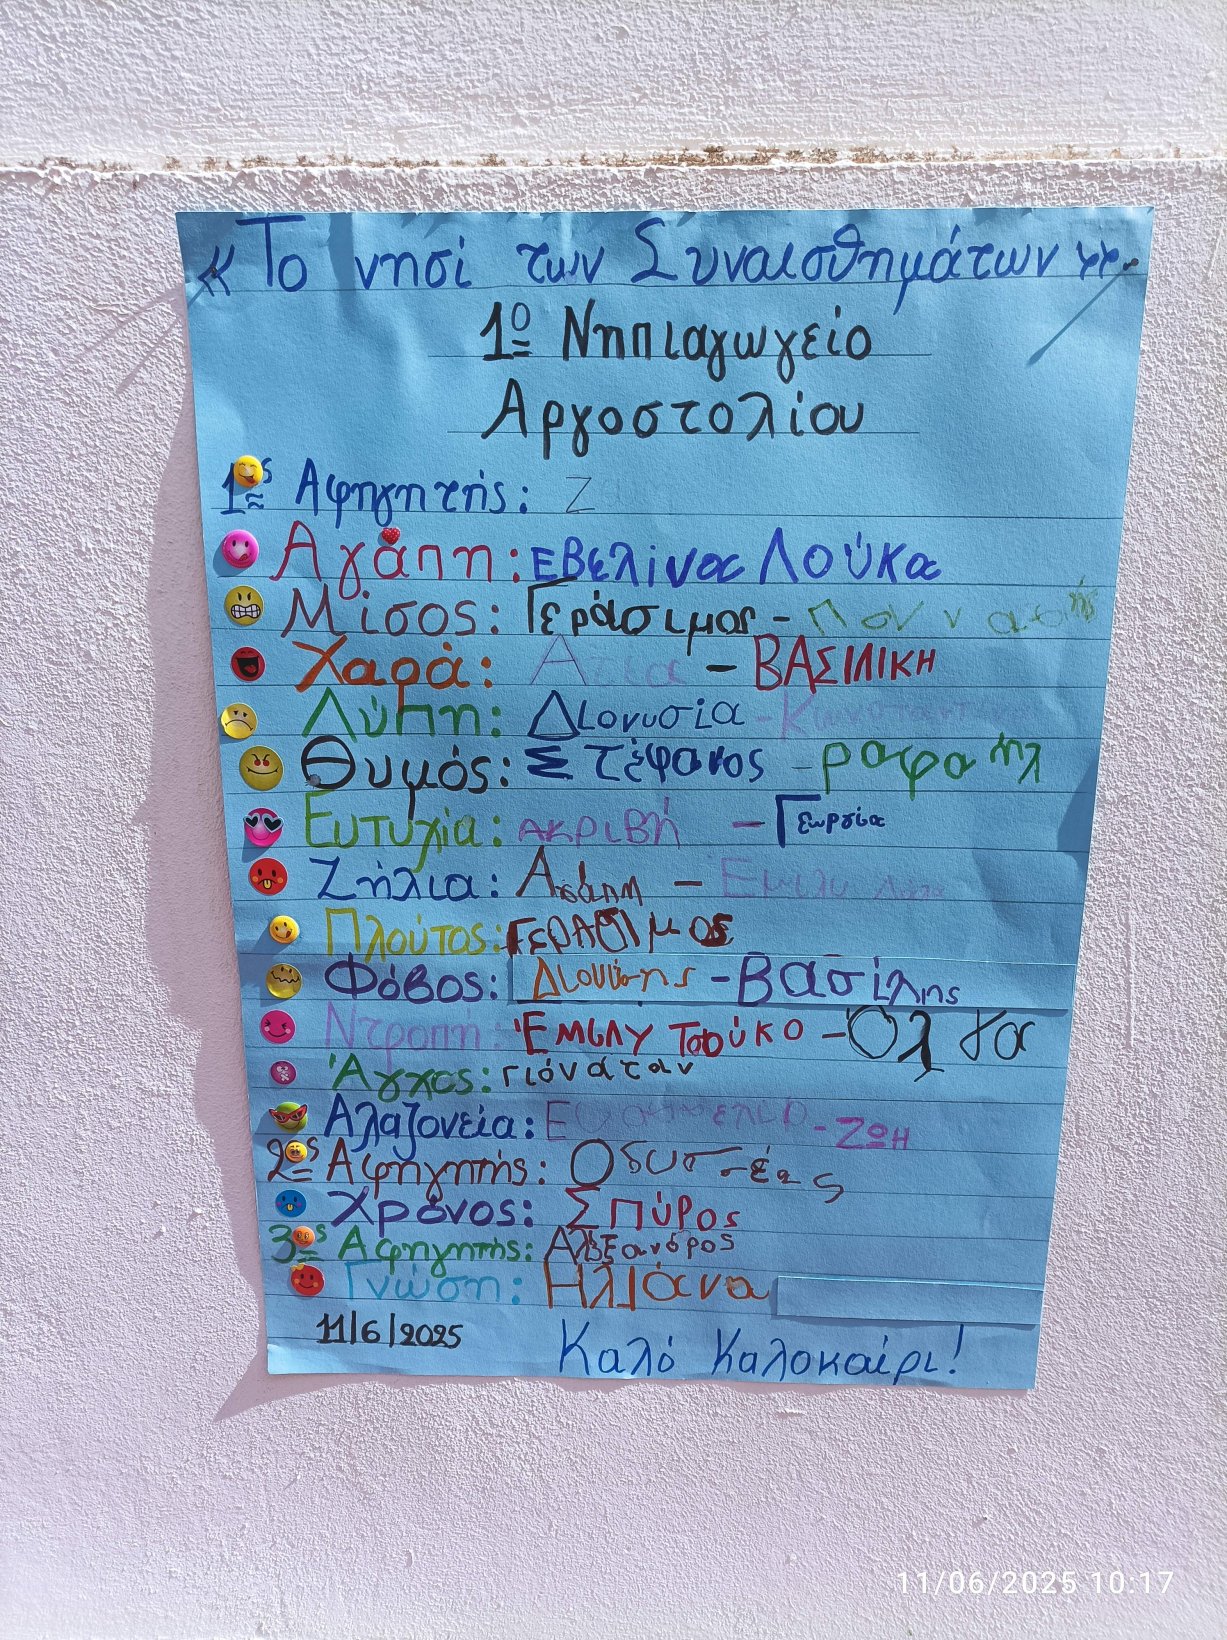 «Το νησί των Συναισθημάτων»
1º Νηπιαγωγείο
Αργοστολίου
1ος Αφηγητής: Ζ
Αγάπη: ΕΒελίνα Λούκα
Μίσος: Γεράσιμος -
Χαρά: - ΒΑΣΙΛΙΚΗ
Λύπη: Διονυσία -
Θυμός: Στέφανος - ραφαήλ
Ευτυχία: ΑΚΡΙΒή - Γεωργία
Ζήλια: Αγάπη - Έμιλυ
Πλούτος: ΓεΡΑσΙμος
Φόβος: Διονύσης - Βασίλης
Ντροπή: Έμιλυ Τσούκο - Όλγα
Άγχος: Γιόνάταν
Αλαζονεία: - ΖΩΗ
2ος Αφηγητής: Οδυσσέας
Χρόνος: Σπύρος
3ος Αφηγητής: Αλέξανδρος
Γνώση: Ηλιάνα
11/6/2025
Καλό Καλοκαίρι!
11/06/2025 10:17